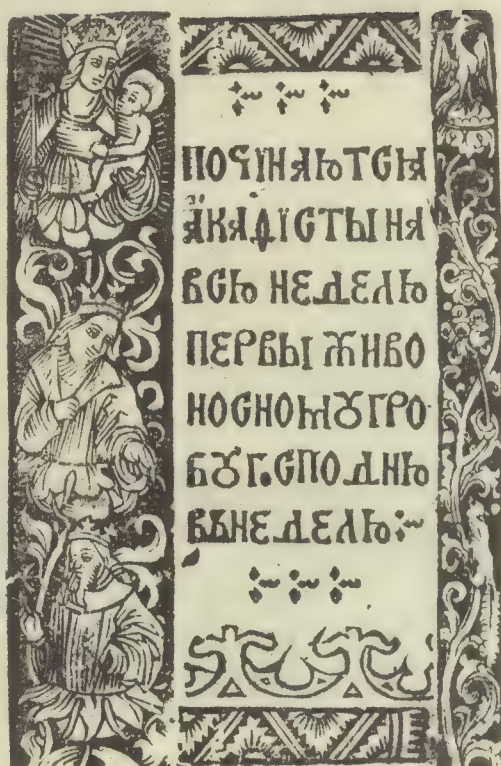 ПОЧІНАЮТСЯ
АКАѲІСТЫ НА
ВСЮ НЕДЕЛЮ
ПЕРВЫ ЖИВО
НОСНОМꙊ ГРО
БꙊ Г.СПОДНЮ
ВЪНЕДЕЛЮ